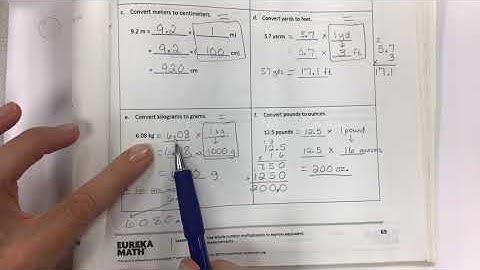 c. Convert meters to centimeters.
9.2 m = 9.2 × ( 1 m)
= 9.2 × (100 cm)
= 920 cm
d. Convert yards to feet.
5.7 yards = 5.7 × 1 yd
= 5.7 × 3 ft
5.7 yds = 17.1 ft
5.7
3
17.1
e. Convert kilograms to grams.
6.08 kg = 6.08 × 1 kg
1000 g
g
6080.
f. Convert pounds to ounces.
12.5 pounds = 12.5 × 1 pound
12.5 × 16 ounces
= 200 oz.
12.5
× 16
750
+ 1250
200.0
EUREKA
MATH
69